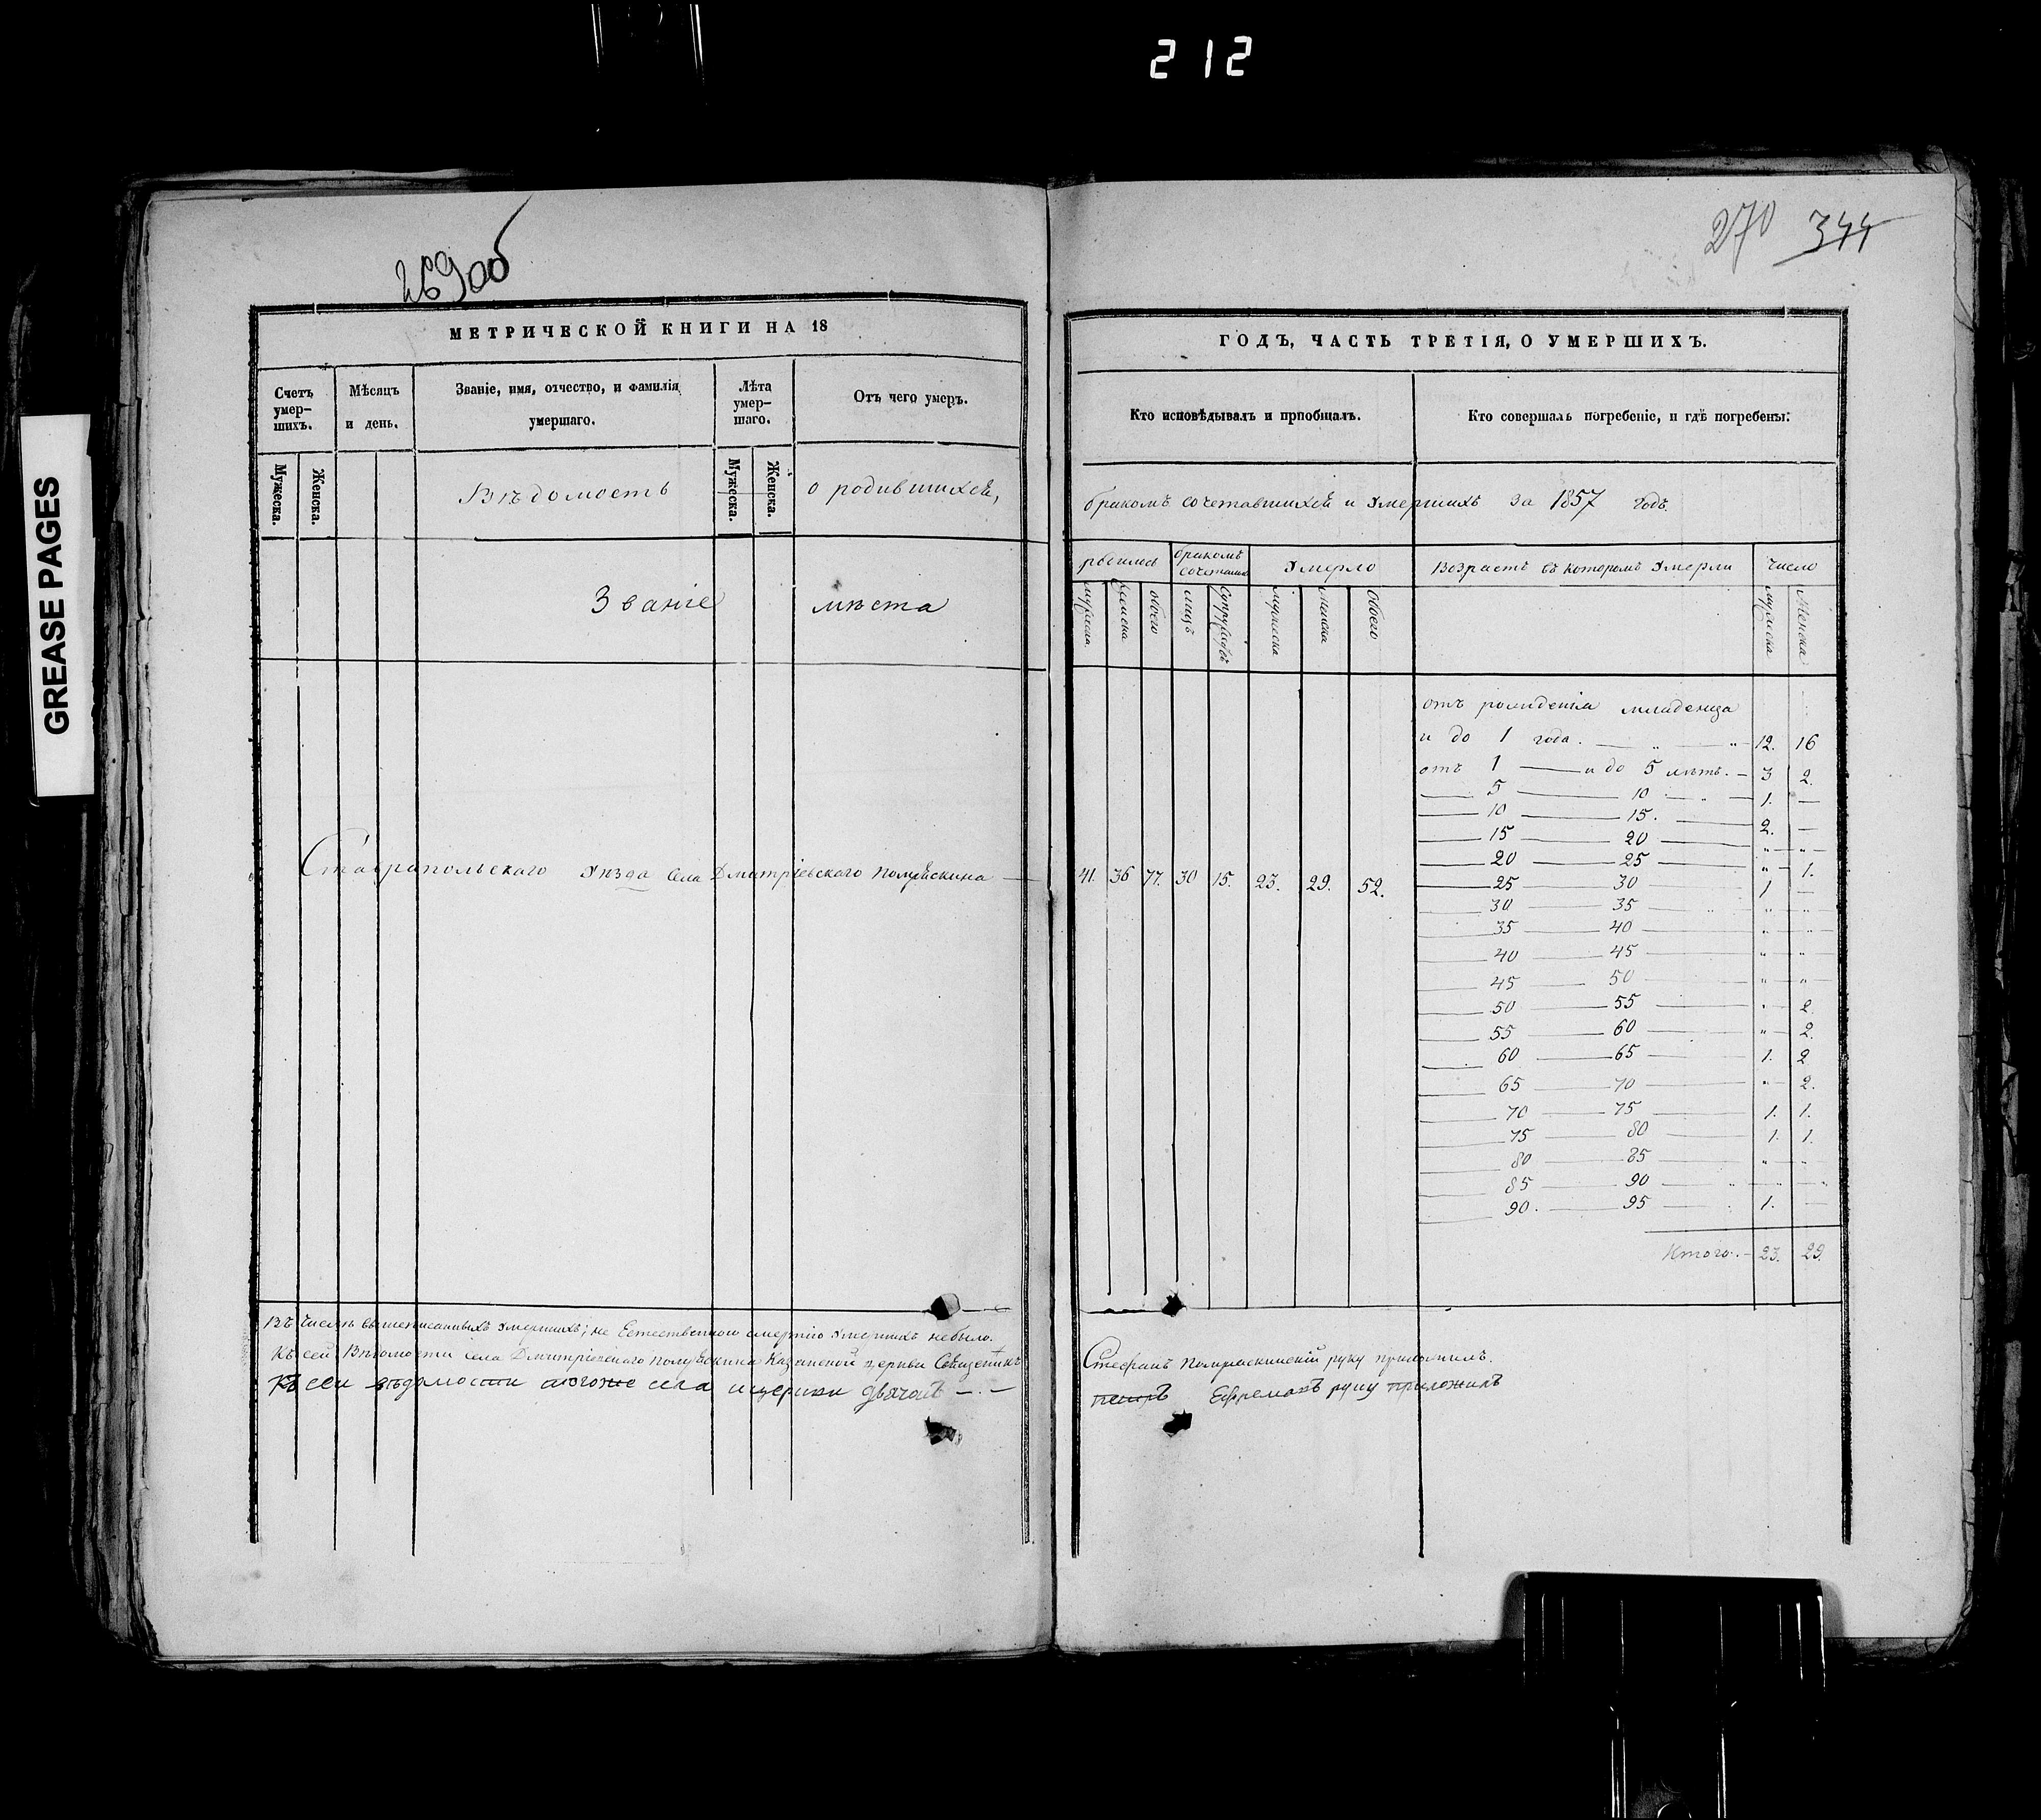 212
GREASE PAGES
269об
270 344
МЕТРИЧЕСКОЙ КНИГИ НА 18
Счетъ умер-шихъ.
Мѣсяцъ и день.
Званіе, имя, отчество, и фамилія умершаго.
Лѣта умер-шаго.
Отъ чего умеръ.
Мужеска.
Женска.
Вѣдомость
Мужеска.
Женска.
о родившихся,
Званіе мѣста
Ставрапольскаго Уѣзда Села Дмитріевскаго Помряскина
Въ числѣ вышеписанныхъ Умершихъ; не Естественною смертію Умершихъ небыло.
Къ сей Вѣдомости села Дмитріевскаго Помряскина Казанской церкви Священникъ
Къ сей вѣдомости тогоже села и церкви дьячокъ
ГОДЪ, ЧАСТЬ ТРЕТІЯ, О УМЕРШИХЪ.
Кто исповѣдывалъ и пріобщалъ.
Кто совершалъ погребеніе, и гдѣ погребены:
бракомъ сочетавшихся и Умершихъ за 1857 годъ.
родилось
бракомъ
Умерло
Возрастъ въ которомъ Умерли
Число
мужеска
женска
обоего
лицъ
Супружествъ
мужеска
женска
Обоего
мужеска
Женска
отъ рожденія младенца
и до 1 года. 12. 16
отъ 1 и до 5 лѣтъ. 3 2.
5 10 1. —
10 15. 2. —
15 20 " "
20 25 " 1.
41. 36 77. 30 15. 23. 29. 52.
25 30 1 —
30 35 " "
35 40 " "
40 45 " "
45 50 " "
50 55 " 2.
55 60 " 2.
60 65 1. 2
65 70 " 2.
70 75 1. 1.
75 80 1. 1.
80 85 " "
85 90 " "
90. 95 1. —
Итого. 23. 29.
Стефанъ Помряскинскій руку приложилъ.
петръ Ефремовъ руку приложилъ